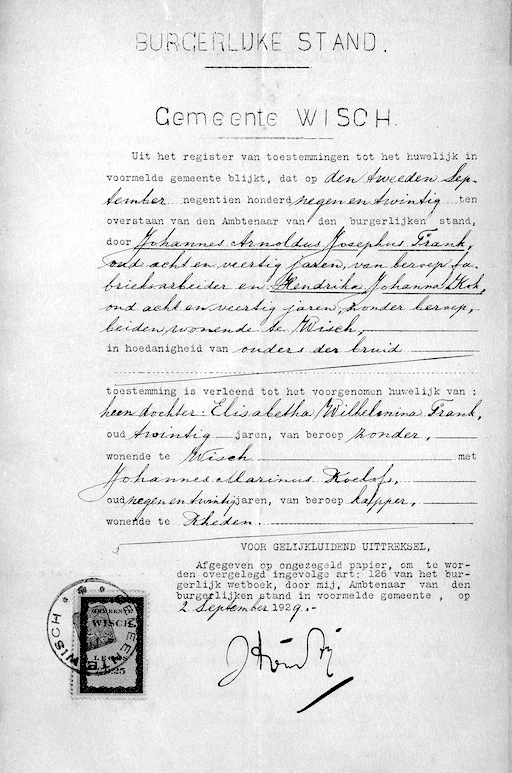 BURGERLIJKE STAND.
Gemeente WISCH.
Uit het register van toestemmingen tot het huwelijk in
voormelde gemeente blijkt, dat op den tweeden Sep-
tember negentien honderd negen en twintig ten
overstaan van den Ambtenaar van den burgerlijken stand,
door Johannes Arnoldus Josephus Frank,
oud acht en veertig jaren, van beroep fa-
brieksarbeider en Hendrika Johanna Kok,
oud acht en veertig jaren, zonder beroep,
beiden wonende te Wisch,
in hoedanigheid van ouders der bruid
toestemming is verleend tot het voorgenomen huwelijk van :
heen dochter: Elisabetha Wilhelmina Frank,
oud twintig jaren, van beroep zonder,
wonende te Wisch met
Johannes Marinus Roelofs,
oud negen en twintig jaren, van beroep kapper,
wonende te Rheden.
VOOR GELIJKLUIDEND UITTREKSEL,
Afgegeven op ongezegeld papier, om te wor-
den overgelegd ingevolge art: 126 van het bur-
gerlijk wetboek, door mij, Ambtenaar van den
burgerlijken stand in voormelde gemeente , op
2 September 1929.-
GEMEENTE WISCH
GEMEENTE
WISCH
LEGES
0.25